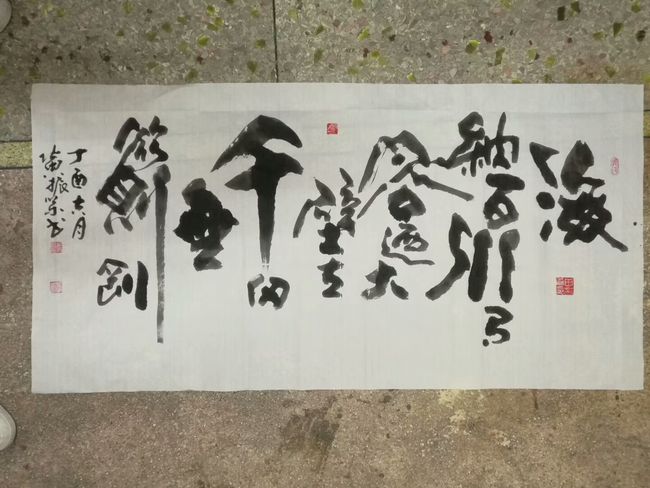 海
納百川有
容迺大
壁立
千仞
無
欲則剛
丁酉六月
振荣书